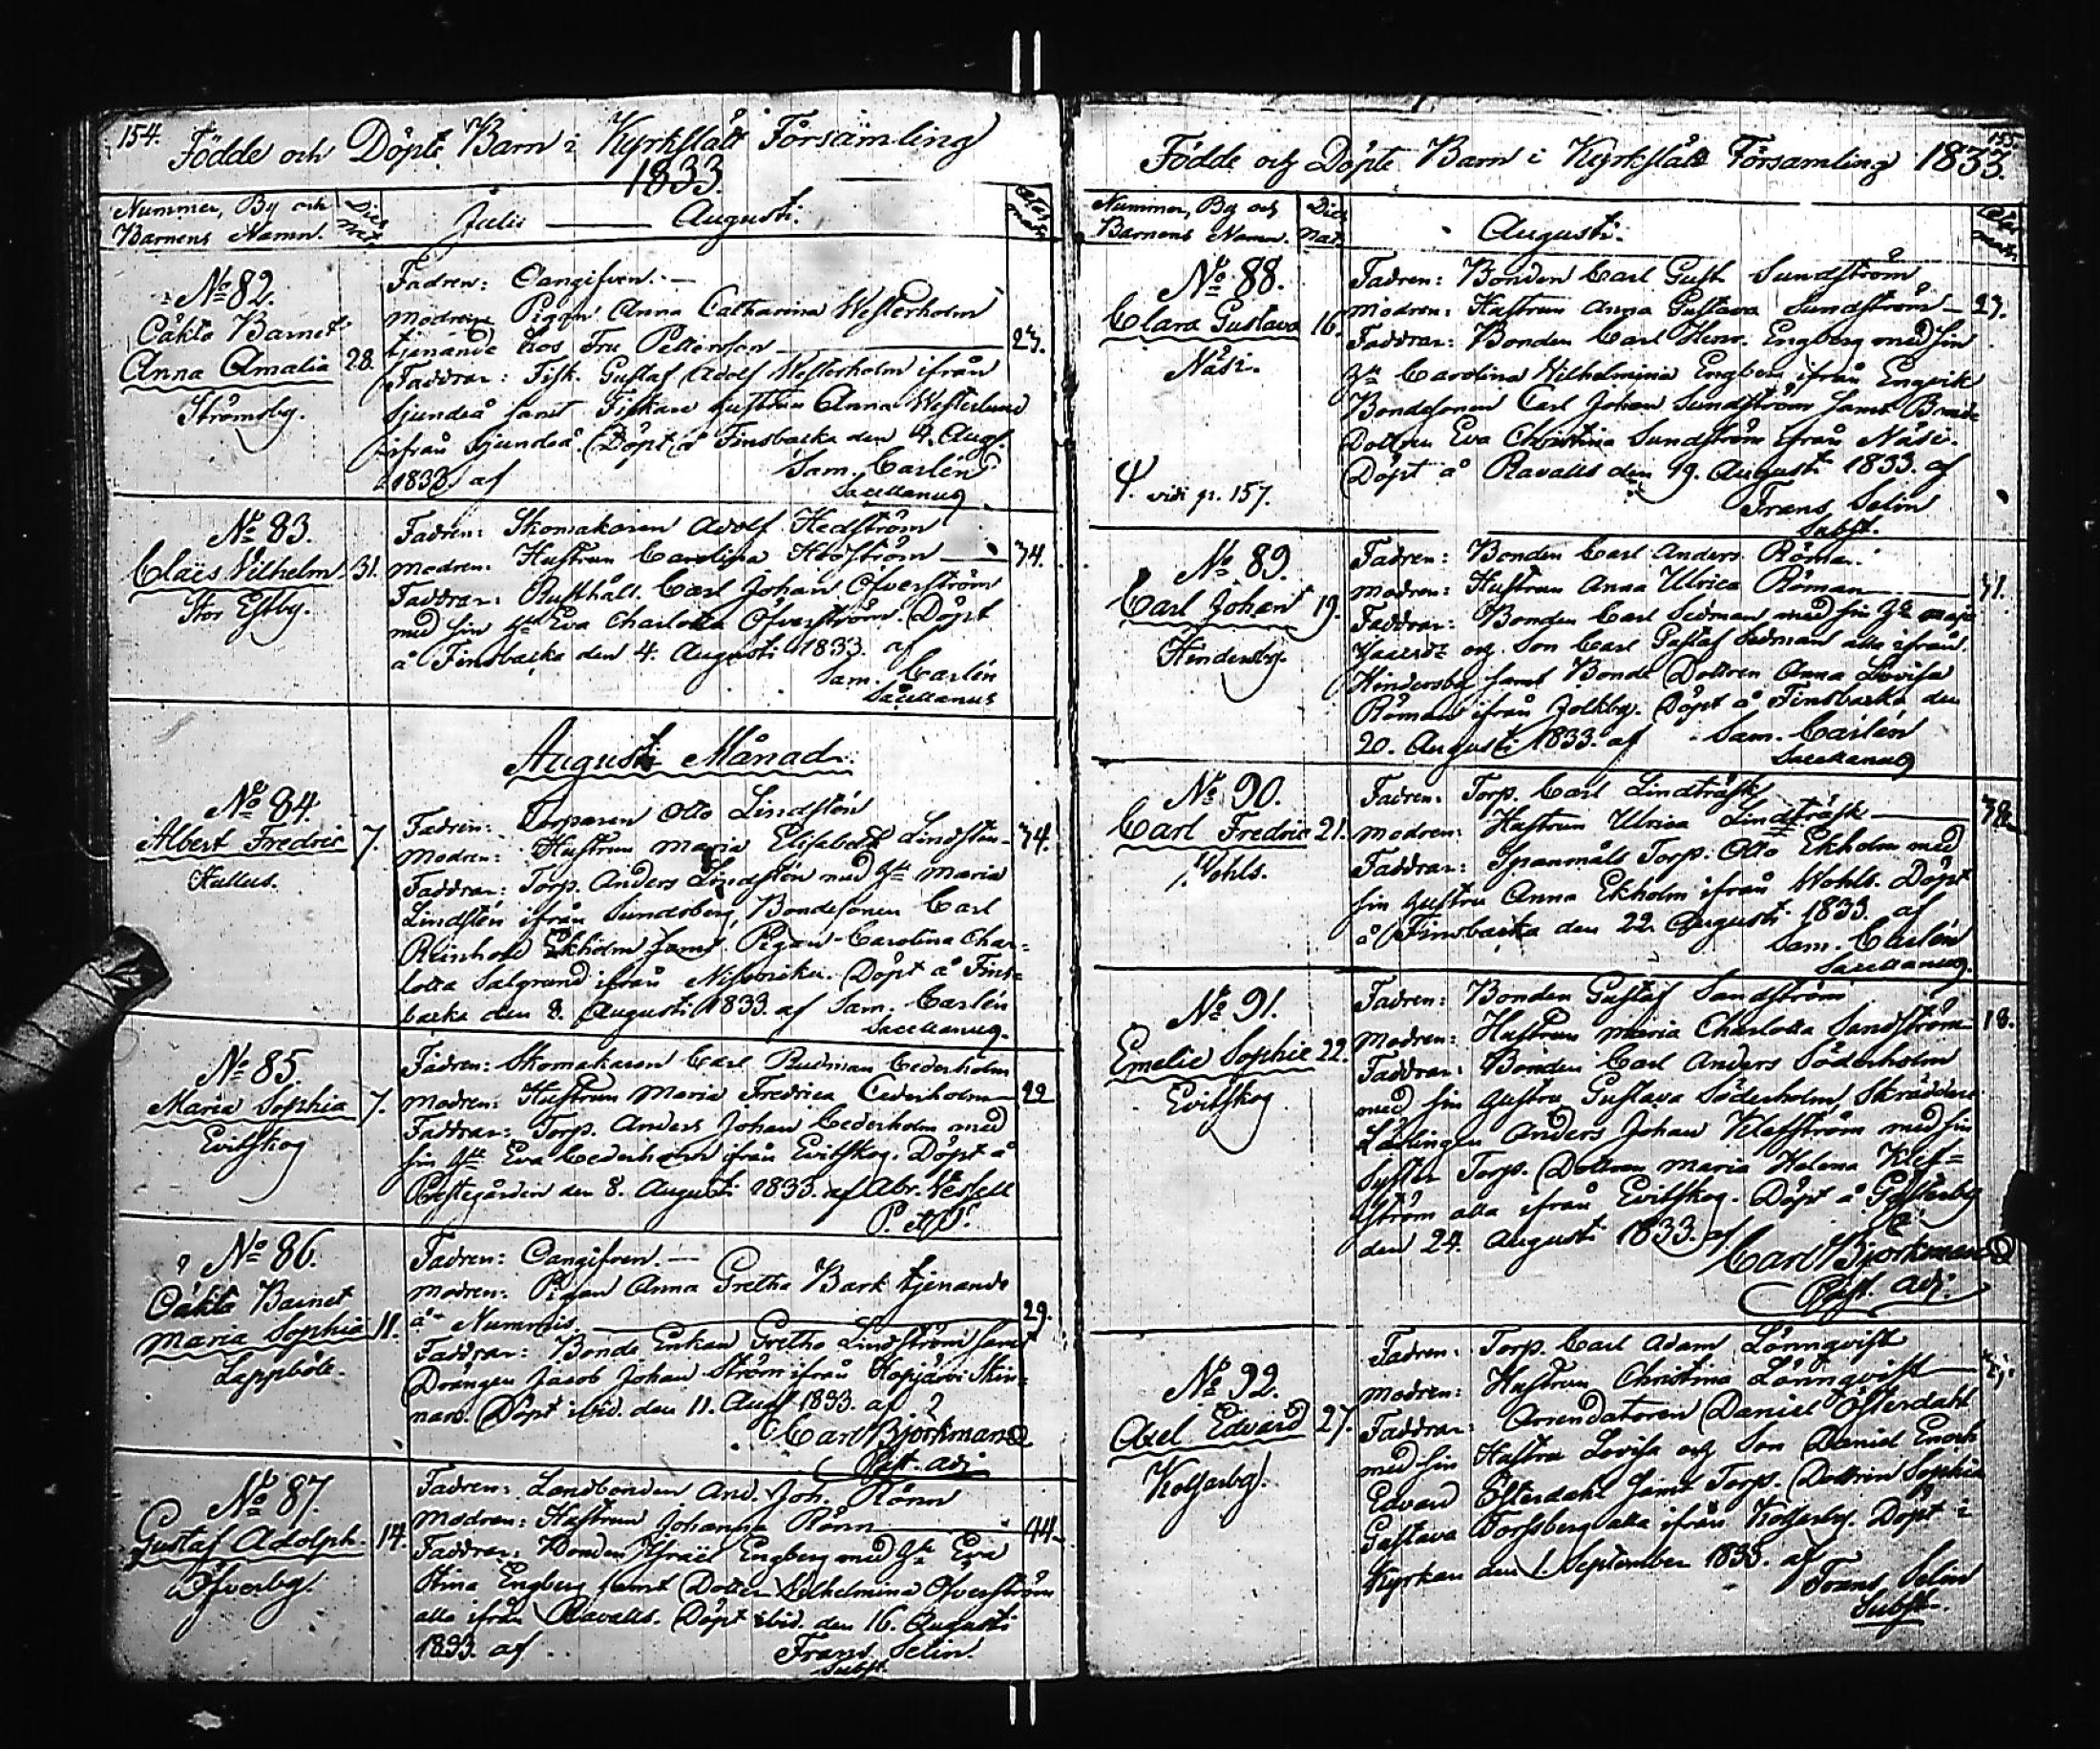 154.
Födde och Döpte Barn i Kyrkslätt Församling
1833.
Nummer, By och
Barnens Namn.
Dies
nat.
Julii — Augusti.
No 82.
Oäkta Barnet
Anna Amalia 28.
Strömsby.
Fadren: Oangifven. —
Modren: Pigan Anna Catharina Westerholm
tjenande hos Fru Petterson — 23.
Faddrar: Fisk. Gustaf Adolf Westerholm ifrån
Sjundeå samt Fiskare hustrun Anna Westerlund
ifrån Sjundeå. Döpt å Finsbacka den 4. Aug.
1833 af Sam. Carlén
Sacellanus
No 83.
Claës Wilhelm 31.
Stor Esby.
Fadren: Skomakaren Adolf Hedström
Modren: Hustrun Carolina Hedström — 34.
Faddrar: Rusthåll. Carl Johan Öfverström
med sin Hu Eva Charlotta Öfverström. Döpt
å Finsbacka den 4. Augusti 1833. af
Sam. Carlén
Sacellanus
Augusti Månad.
No 84.
Albert Fredric 7.
Hullus.
Fadren: Torparen Otto Lindstén
Modren: Hustrun Maria Elisabeth Lindstén — 34.
Faddrar: Torp. Anders Lindstén med Hu Maria
Lindstén ifrån Sundsberg, Bondesonen Carl
Reinhold Ekholm samt Pigan Carolina Char-
lotta Salgrund ifrån Nissniku. Döpt å Fins-
backa den 8. Augusti 1833. af Sam. Carlén
Sacellanus.
No 85.
Maria Sophia 7.
Evitskog
Fadren: Skomakaren Carl Cederholm
Modren: Hustrun Maria Fredrica Cederholm — 22
Faddrar: Torp. Anders Johan Cederholm med
sin Hu Eva Cederholm ifrån Evitskog. Döpt å
Prestegården den 8. Augusti 1833. af Abr.
No 86.
Oäkta Barnet
Maria Sophia 11.
Lappböle.
Fadren: Oangifven. —
Modren: Pigan Anna Gretha Bark tjenande
å Nummis. — 29.
Faddrar: Bonde Enkan Gretha Lindström samt
Drängen Jacob Johan Ström ifrån Hapjärvi Skin-
nars. Döpt ibid. den 11. Aug. 1833. af
Carl Björkman
Past. adj.
No 87.
Gustaf Adolph. 14.
Öfverby.
Fadren: Landbonden And. Joh. Rönn
Modren: Hustrun Johanna Rönn — 44.
Faddrar: Bonden Israël Engberg med Hu Eva
Stina Engberg samt Dotter Wilhelmina Öfverström
alla ifrån Ravalls. Döpt ibid. den 16. Augusti
1833. af Frans Selin.
Subst.
155.
Födde och Döpte Barn i Kyrkslätt Församling 1833.
Nummer, By och
Barnens Namn.
Dies
nat.
Augusti.
No 88.
Clara Gustava 16.
Näsi.
vidi p. 157.
Fadren: Bonden Carl Gust. Sundström
Modren: Hustrun Anna Gustava Sundström — 27.
Faddrar: Bonden Carl Henr. Engberg med sin
Hu Carolina Wilhelmina Engberg ifrån Engvik
Bondesonen Carl Johan Sundström samt Bonde
Dottren Eva Christina Sundström ifrån Näsi.
Döpt å Ravalls den 19. Augusti 1833. af
Frans Selin
Subst.
No 89.
Carl Johan 19.
Hindersby.
Fadren: Bonden Carl Anders Röman.
Modren: Hustrun Anna Ulrica Röman — 31.
Faddrar: Bonden Carl Sedman med sin Hu Maja
och Son Carl Gustaf Sedman alla ifrån
Hindersby samt Bonde Dottren Anna Lovisa
Röman ifrån Jolkby. Döpt å Finsbacka den
20. Augusti 1833. af Sam. Carlén
Sacellanus
No 90.
Carl Fredric 21.
Wohls.
Fadren: Torp. Carl Lindträsk
Modren: Hustrun Ulrica Lindträsk — 38
Faddrar: Spanmåls Torp. Otto Ekholm med
sin hustru Anna Ekholm ifrån Wohls. Döpt
å Finsbacka den 22 Augusti 1833. af
Sam. Carlén
Sacellanus.
No 91.
Emelie Sophie 22.
Evitskog
Fadren: Bonden Gustaf Sandström
Modren: Hustrun Maria Charlotta Sandström — 18.
Faddrar: Bonden Carl Anders Söderholm
med sin hustru Gustava Söderholm, Skräddare
Lärlingen Anders Johan Klefström med sin
Syster Torp. Dottren Maria Helena Klef-
ström alla ifrån Evitskog. Döpt å Gesterby
den 24. Augusti 1833. af
Carl Björkman
Past. adj.
No 92.
Axel Edvard 27.
Kolsarby.
Fadren: Torp. Carl Adam Lönnqvist
Modren: Hustrun Christina Lönnqvist
Faddrar: Arrendatoren Daniel Österdahl
med sin Hustru Lovisa och Son Daniel Enoch
Edvard Österdahl samt Torp. Dottren Sophia
Gustava Forssberg alla ifrån Kolsarby. Döpt i
Kyrkan den 1 September 1833. af
Frans Selin
Subst.